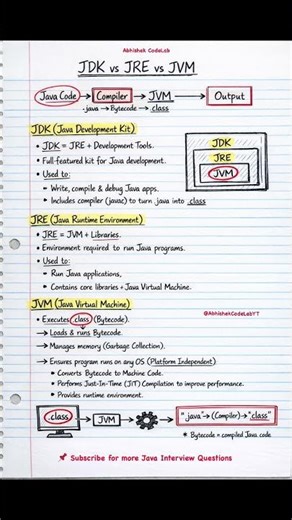 Abhishek CodeLab
JDK vs JRE vs JVM
Java Code → Compiler → JVM → Output
.java → Bytecode → .class
JDK (Java Development Kit)
• JDK = JRE + Development Tools.
• Full-featured kit for Java development.
• Used to:
• Write, compile & debug Java apps.
• Includes compiler (javac) to turn java into .class
JDK
JRE
JVM
JRE (Java Runtime Environment)
• JRE = JVM + Libraries.
• Environment required to run Java programs.
• Used to:
• Run Java applications,
• Contains core libraries + Java Virtual Machine.
JVM (Java Virtual Machine)
@AbhishekCodeLabYT
• Executes .class (Bytecode).
→ Loads & runs Bytecode.
→ Manages memory (Garbage Collection).
→ Ensures program runs on any OS (Platform Independent)
• Converts Bytecode to Machine Code.
• Performs Just-In-Time (JIT) Compilation to improve performance.
• Provides runtime environment.
.class → JVM → "java" → (Compiler) → ".class"
* Bytecode = compiled Java code
Subscribe for more Java Interview Questions